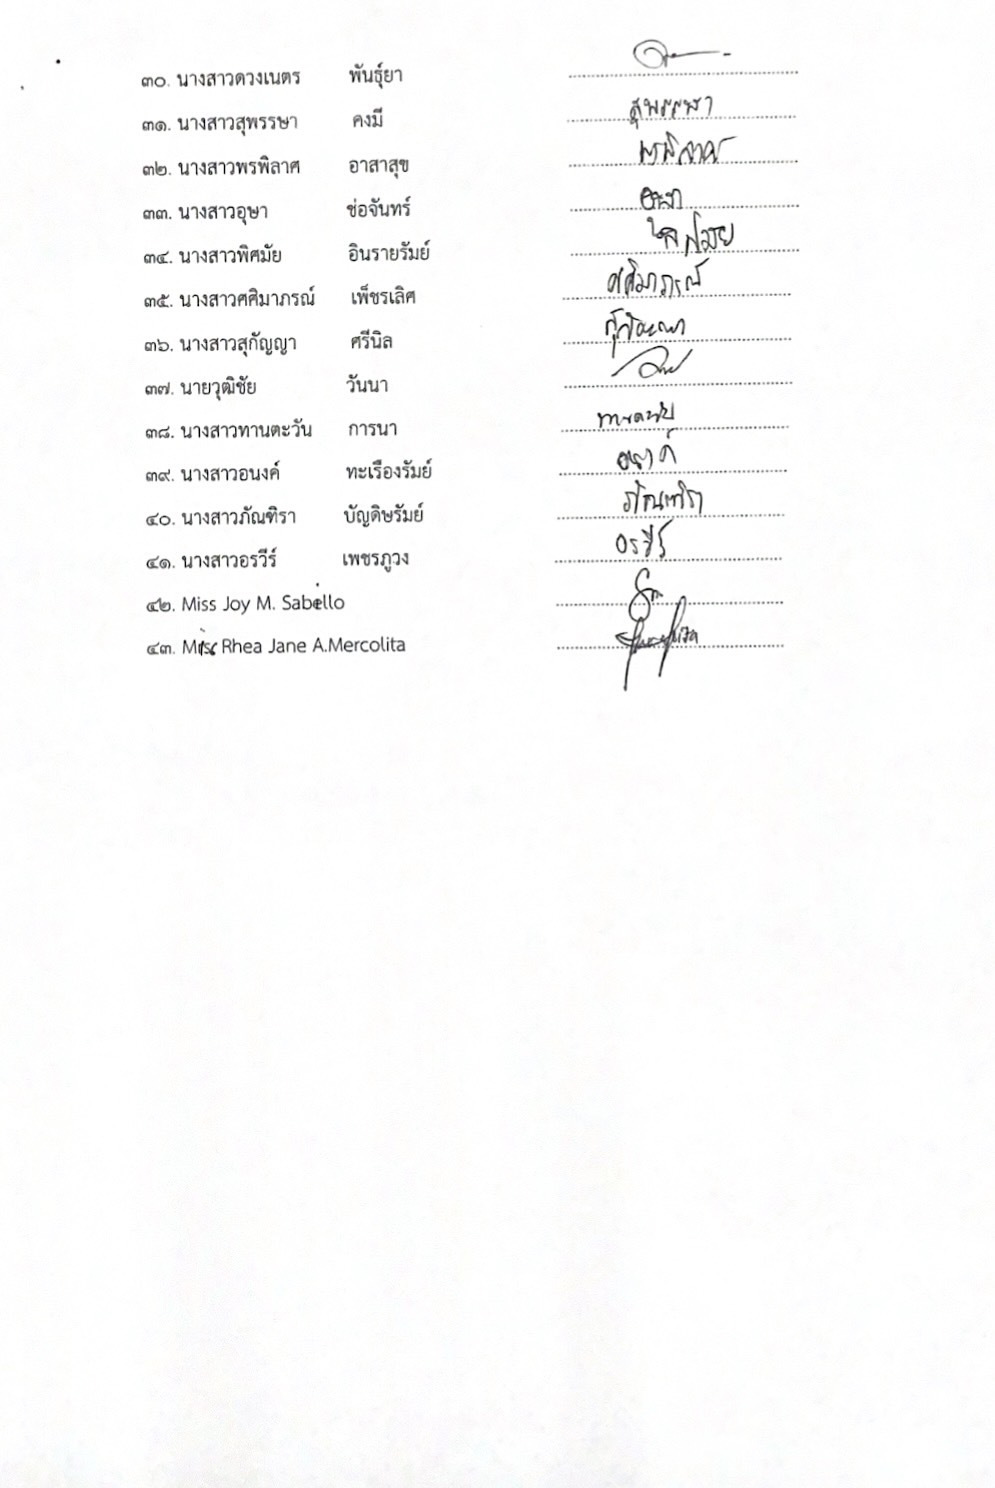 ๓๐. นางสาวดวงเนตร พันธุ์ยา
๓๑. นางสาวสุพรรษา คงมี สุพรรษา
๓๒. นางสาวพรพิลาศ อาสาสุข พรพิลาศ
๓๓. นางสาวอุษา ช่อจันทร์ อุษา
๓๔. นางสาวพิศมัย อินรายรัมย์
๓๕. นางสาวศศิมาภรณ์ เพ็ชรเลิศ ศศิมาภรณ์
๓๖. นางสาวสุกัญญา ศรีนิล
๓๗. นายวุฒิชัย วันนา
๓๘. นางสาวทานตะวัน การนา
๓๙. นางสาวอนงค์ ทะเรืองรัมย์ อนงค์
๔๐. นางสาวภัณฑิรา บัญดิษรัมย์ ภัณฑิรา
๔๑. นางสาวอรวีร์ เพชรภูวง อรวีร์
๔๒. Miss Joy M. Sabello
๔๓. Miss Rhea Jane A.Mercolita